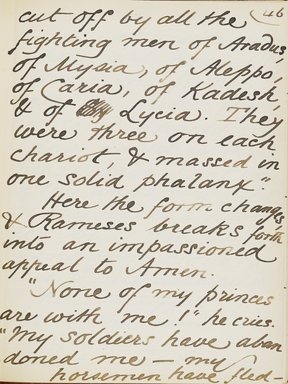 46
cut off by all the
fighting men of Aradus,
of Mysia, of Aleppo,
of Caria, of Kadesh,
& of Lycia. They
were three on each
chariot, & massed in
one solid phalanx."
Here the form changes
& Rameses breaks forth
into an impassioned
appeal to Amen.
"None of my princes
are with me!" he cries.
"My soldiers have aban
doned me – my
horsemen have fled –